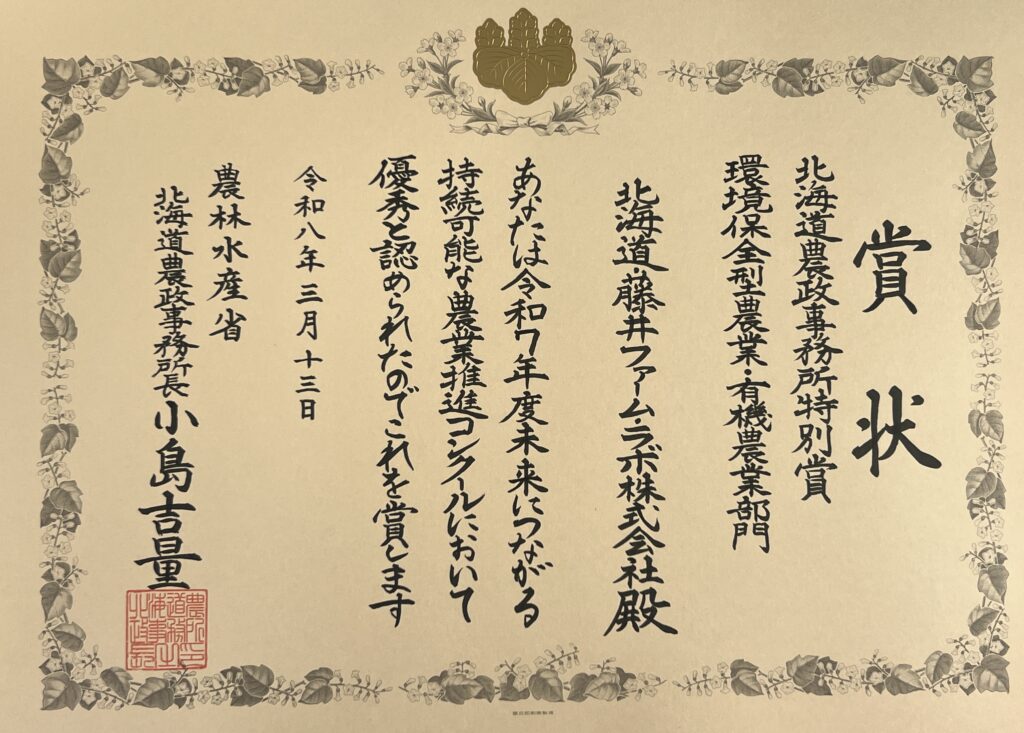 賞状
北海道農政事務所特別賞
環境保全型農業・有機農業部門
北海道・藤井ファーム・ラボ株式会社殿
あなたは令和7年度未来につながる
持続可能な農業推進コンクールにおいて
優秀と認められたのでこれを賞します
令和八年三月十三日
農林水産省
北海道農政事務所長小島吉量